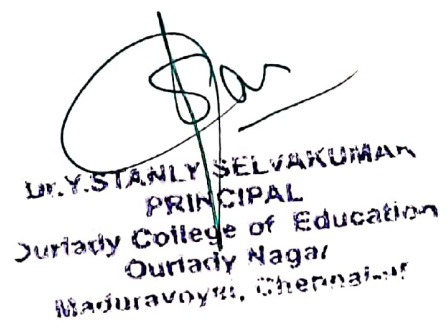 Dr.Y.STANLY SELVAKUMAR
PRINCIPAL
Ourlady College of Education
Ourlady Nagar
Maduravoyal, Chennai-